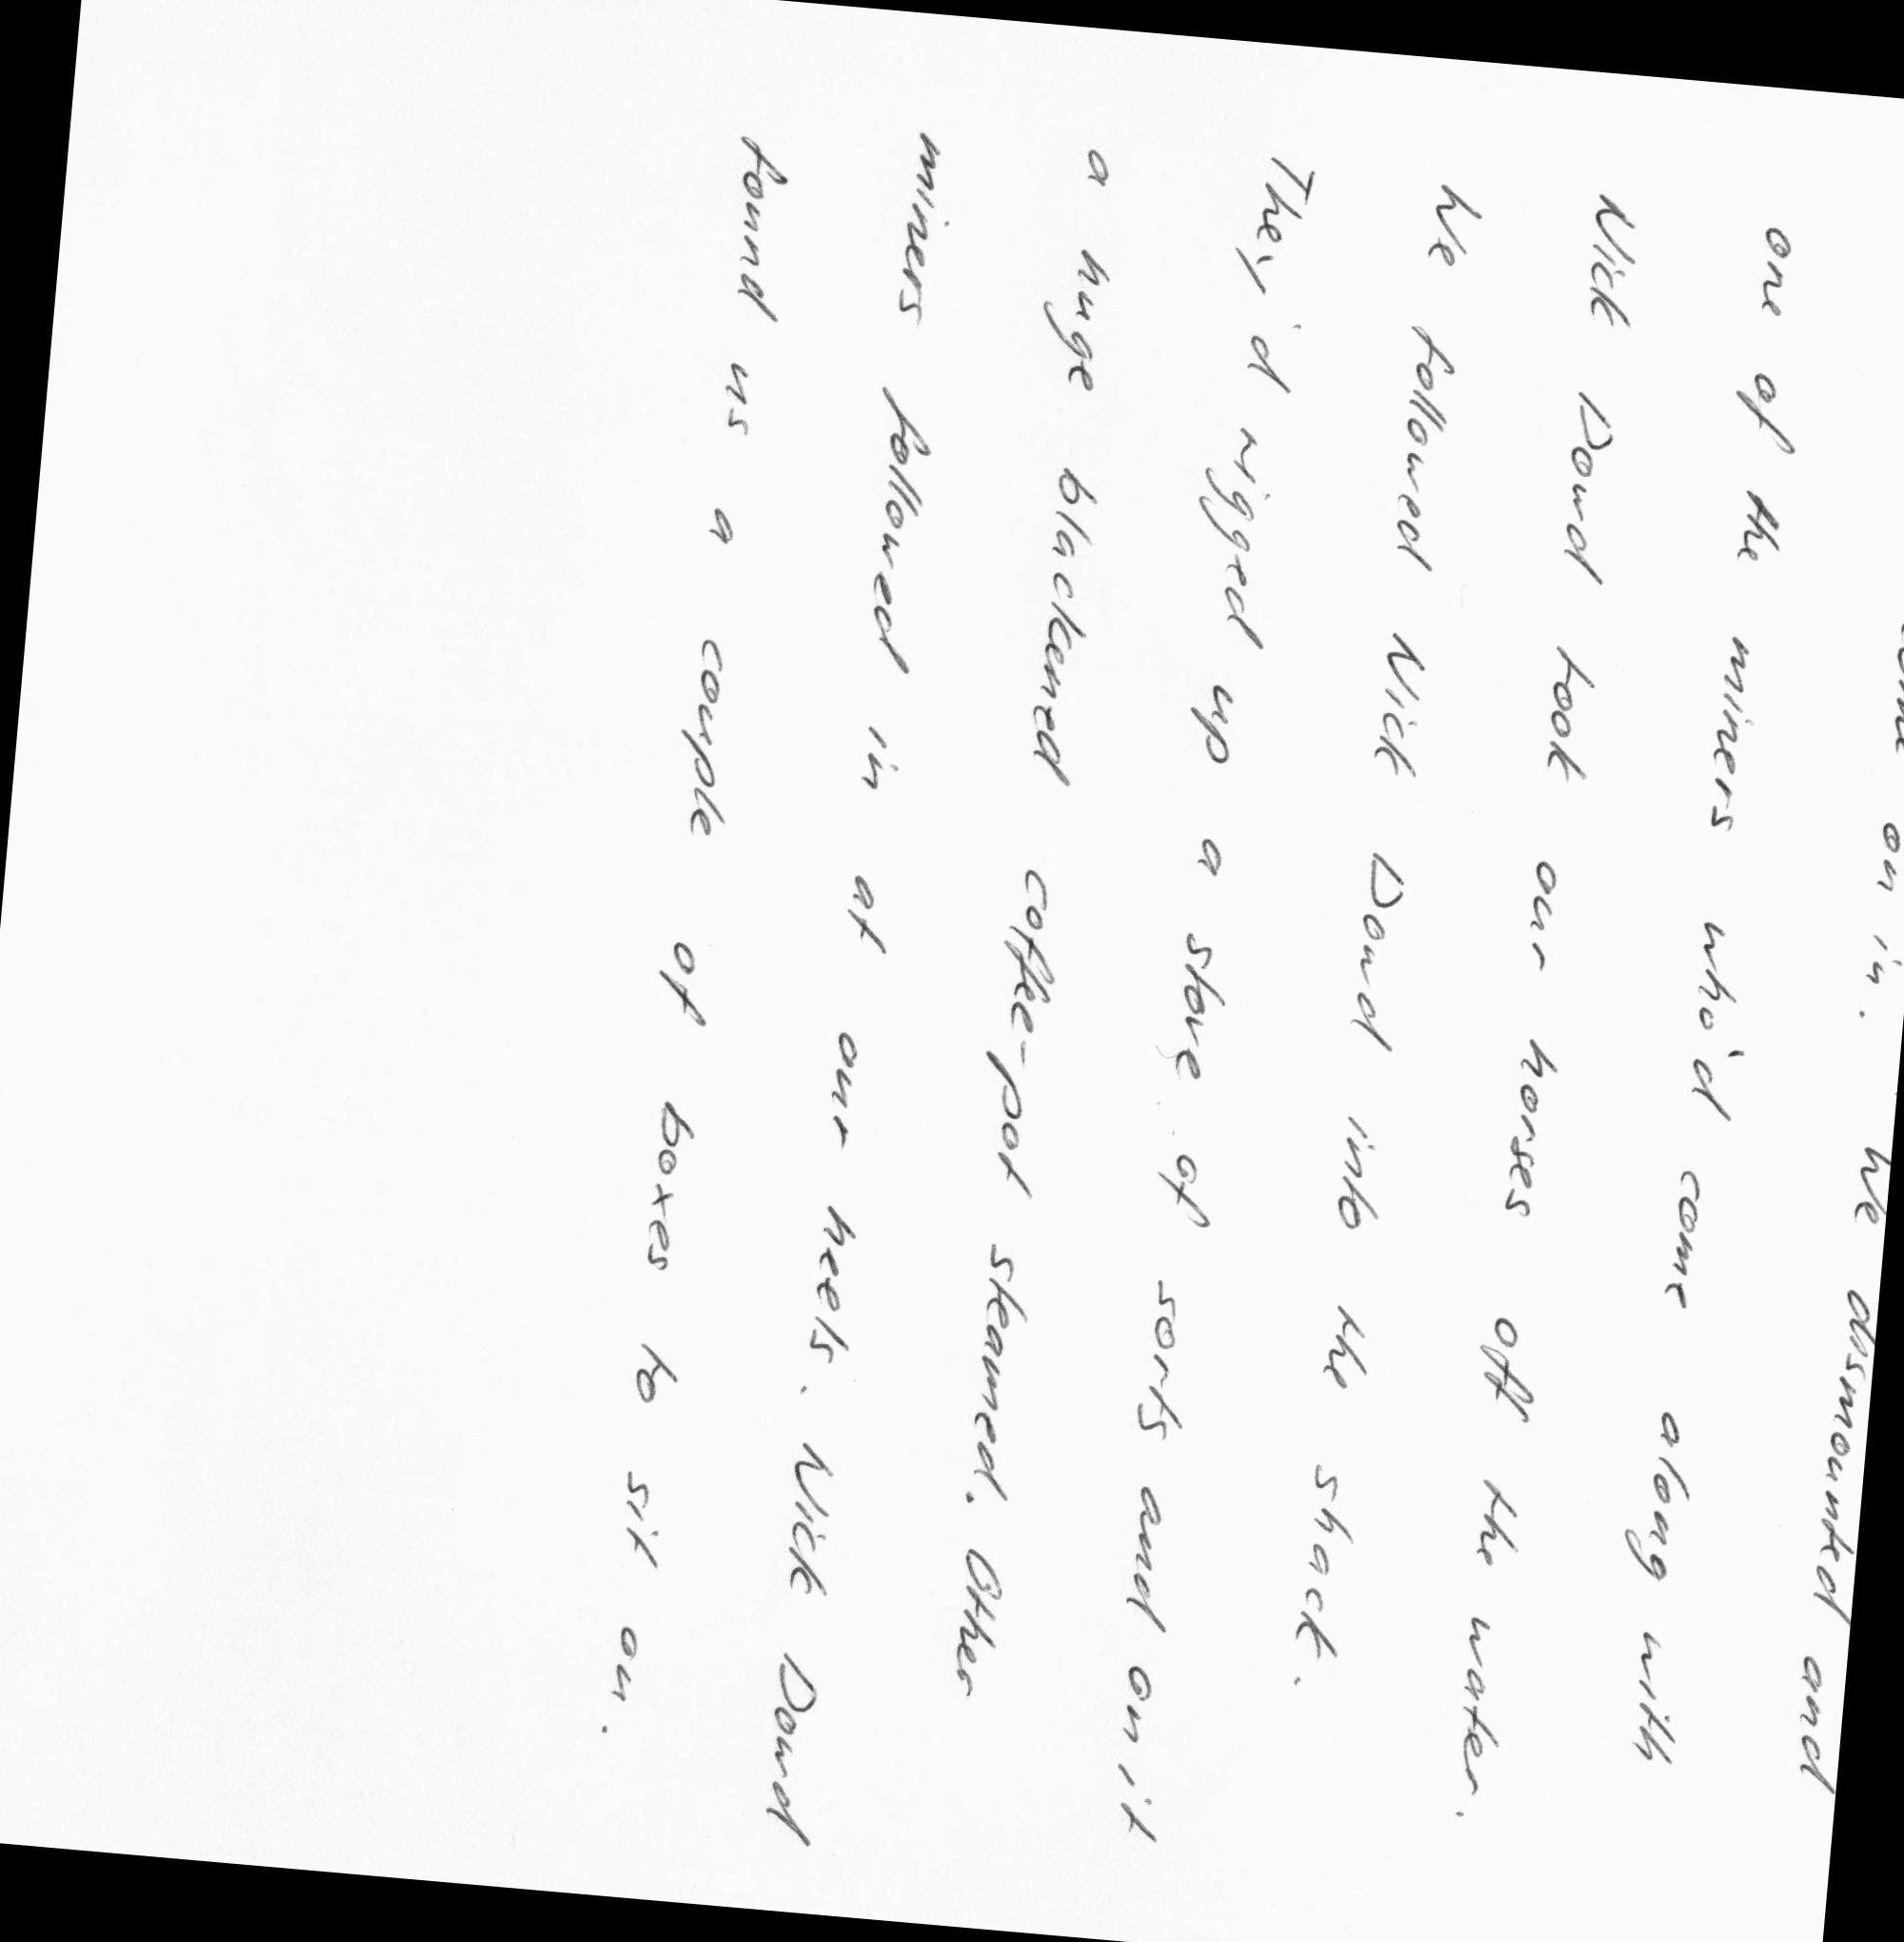 on in. We dismounted and
one of the miners who'd come along with
Nick Dowd took our horses off the water.
We followed Nick Dowd into the shack.
They'd rigged up a stove of sorts and on it
a huge blackened coffee-pot steamed. Other
miners followed in at our heels. Nick Dowd
found us a couple of boxes to sit on.